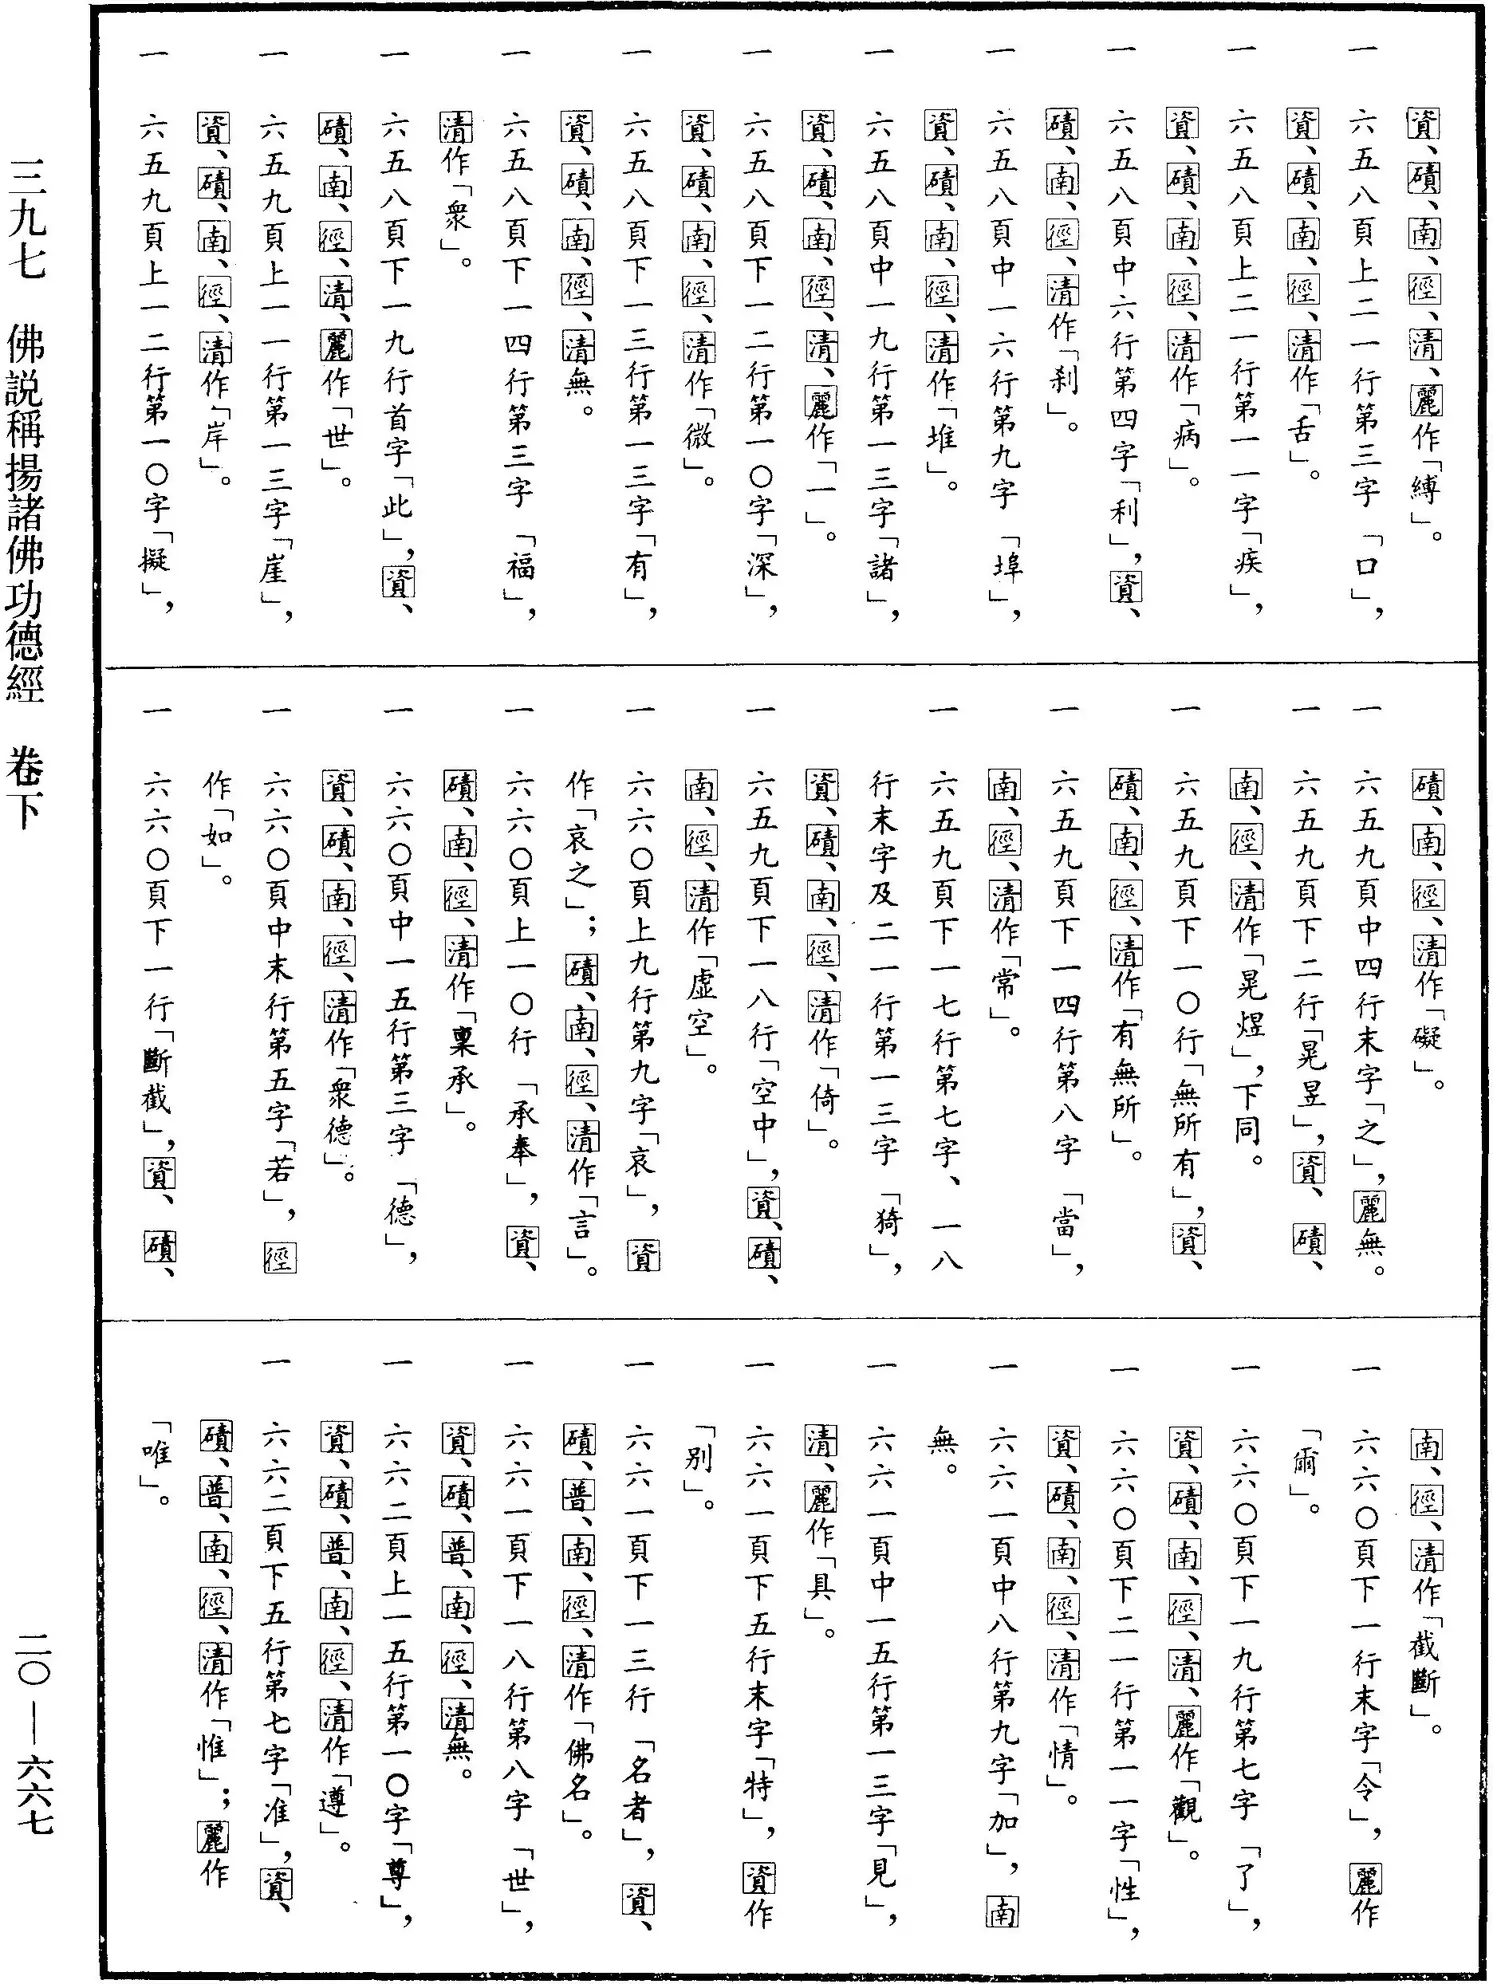 資、磧、南、徑、清、麗作「縛」。
一 六五八頁上二一行第三字「口」，
資、磧、南、徑、清作「舌」。
一 六五八頁上二一行第一一字「疾」，
資、磧、南、徑、清作「病」。
一 六五八頁中六行第四字「利」，資、
磧、南、徑、清作「刹」。
一 六五八頁中一六行第九字「埠」，
資、磧、南、徑、清作「堆」。
一 六五八頁中一九行第一三字「諸」，
資、磧、南、徑、清、麗作「一」。
一 六五八頁下一二行第一〇字「深」，
資、磧、南、徑、清作「微」。
一 六五八頁下一三行第一三字「有」，
資、磧、南、徑、清無。
一 六五八頁下一四行第三字「福」，
清作「衆」。
一 六五八頁下一九行首字「此」，資、
磧、南、徑、清、麗作「世」。
一 六五九頁上一一行第一三字「崖」，
資、磧、南、徑、清作「岸」。
一 六五九頁上一二行第一〇字「擬」，
磧、南、徑、清作「礙」。
一 六五九頁中四行末字「之」，麗無。
一 六五九頁下二行「晃昱」，資、磧、
南、徑、清作「晃煜」，下同。
一 六五九頁下一〇行「無所有」，資、
磧、南、徑、清作「有無所」。
一 六五九頁下一四行第八字「當」，
南、徑、清作「常」。
一 六五九頁下一七行第七字、一八
行末字及二一行第一三字「猗」，
資、磧、南、徑、清作「倚」。
一 六五九頁下一八行「空中」，資、磧、
南、徑、清作「虛空」。
一 六六〇頁上九行第九字「哀」，資
作「哀之」；磧、南、徑、清作「言」。
一 六六〇頁上一〇行「承奉」，資、
磧、南、徑、清作「稟承」。
一 六六〇頁中一五行第三字「德」，
資、磧、南、徑、清作「衆德」。
一 六六〇頁中末行第五字「若」，徑
作「如」。
一 六六〇頁下一行「斷截」，資、磧、
南、徑、清作「截斷」。
一 六六〇頁下一行末字「令」，麗作
「爾」。
一 六六〇頁下一九行第七字「了」，
資、磧、南、徑、清、麗作「觀」。
一 六六〇頁下二一行第一一字「性」，
資、磧、南、徑、清作「情」。
一 六六一頁中八行第九字「加」，南
無。
一 六六一頁中一五行第一三字「見」，
清、麗作「具」。
一 六六一頁下五行末字「特」，資作
「别」。
一 六六一頁下一三行「名者」，資、
磧、普、南、徑、清作「佛名」。
一 六六一頁下一八行第八字「世」，
資、磧、普、南、徑、清無。
一 六六二頁上一五行第一〇字「尊」，
資、磧、普、南、徑、清作「遵」。
一 六六二頁下五行第七字「准」，資、
磧、普、南、徑、清作「惟」；麗作
「唯」。
三九七 佛説稱揚諸佛功德經 卷下
二〇——六六七